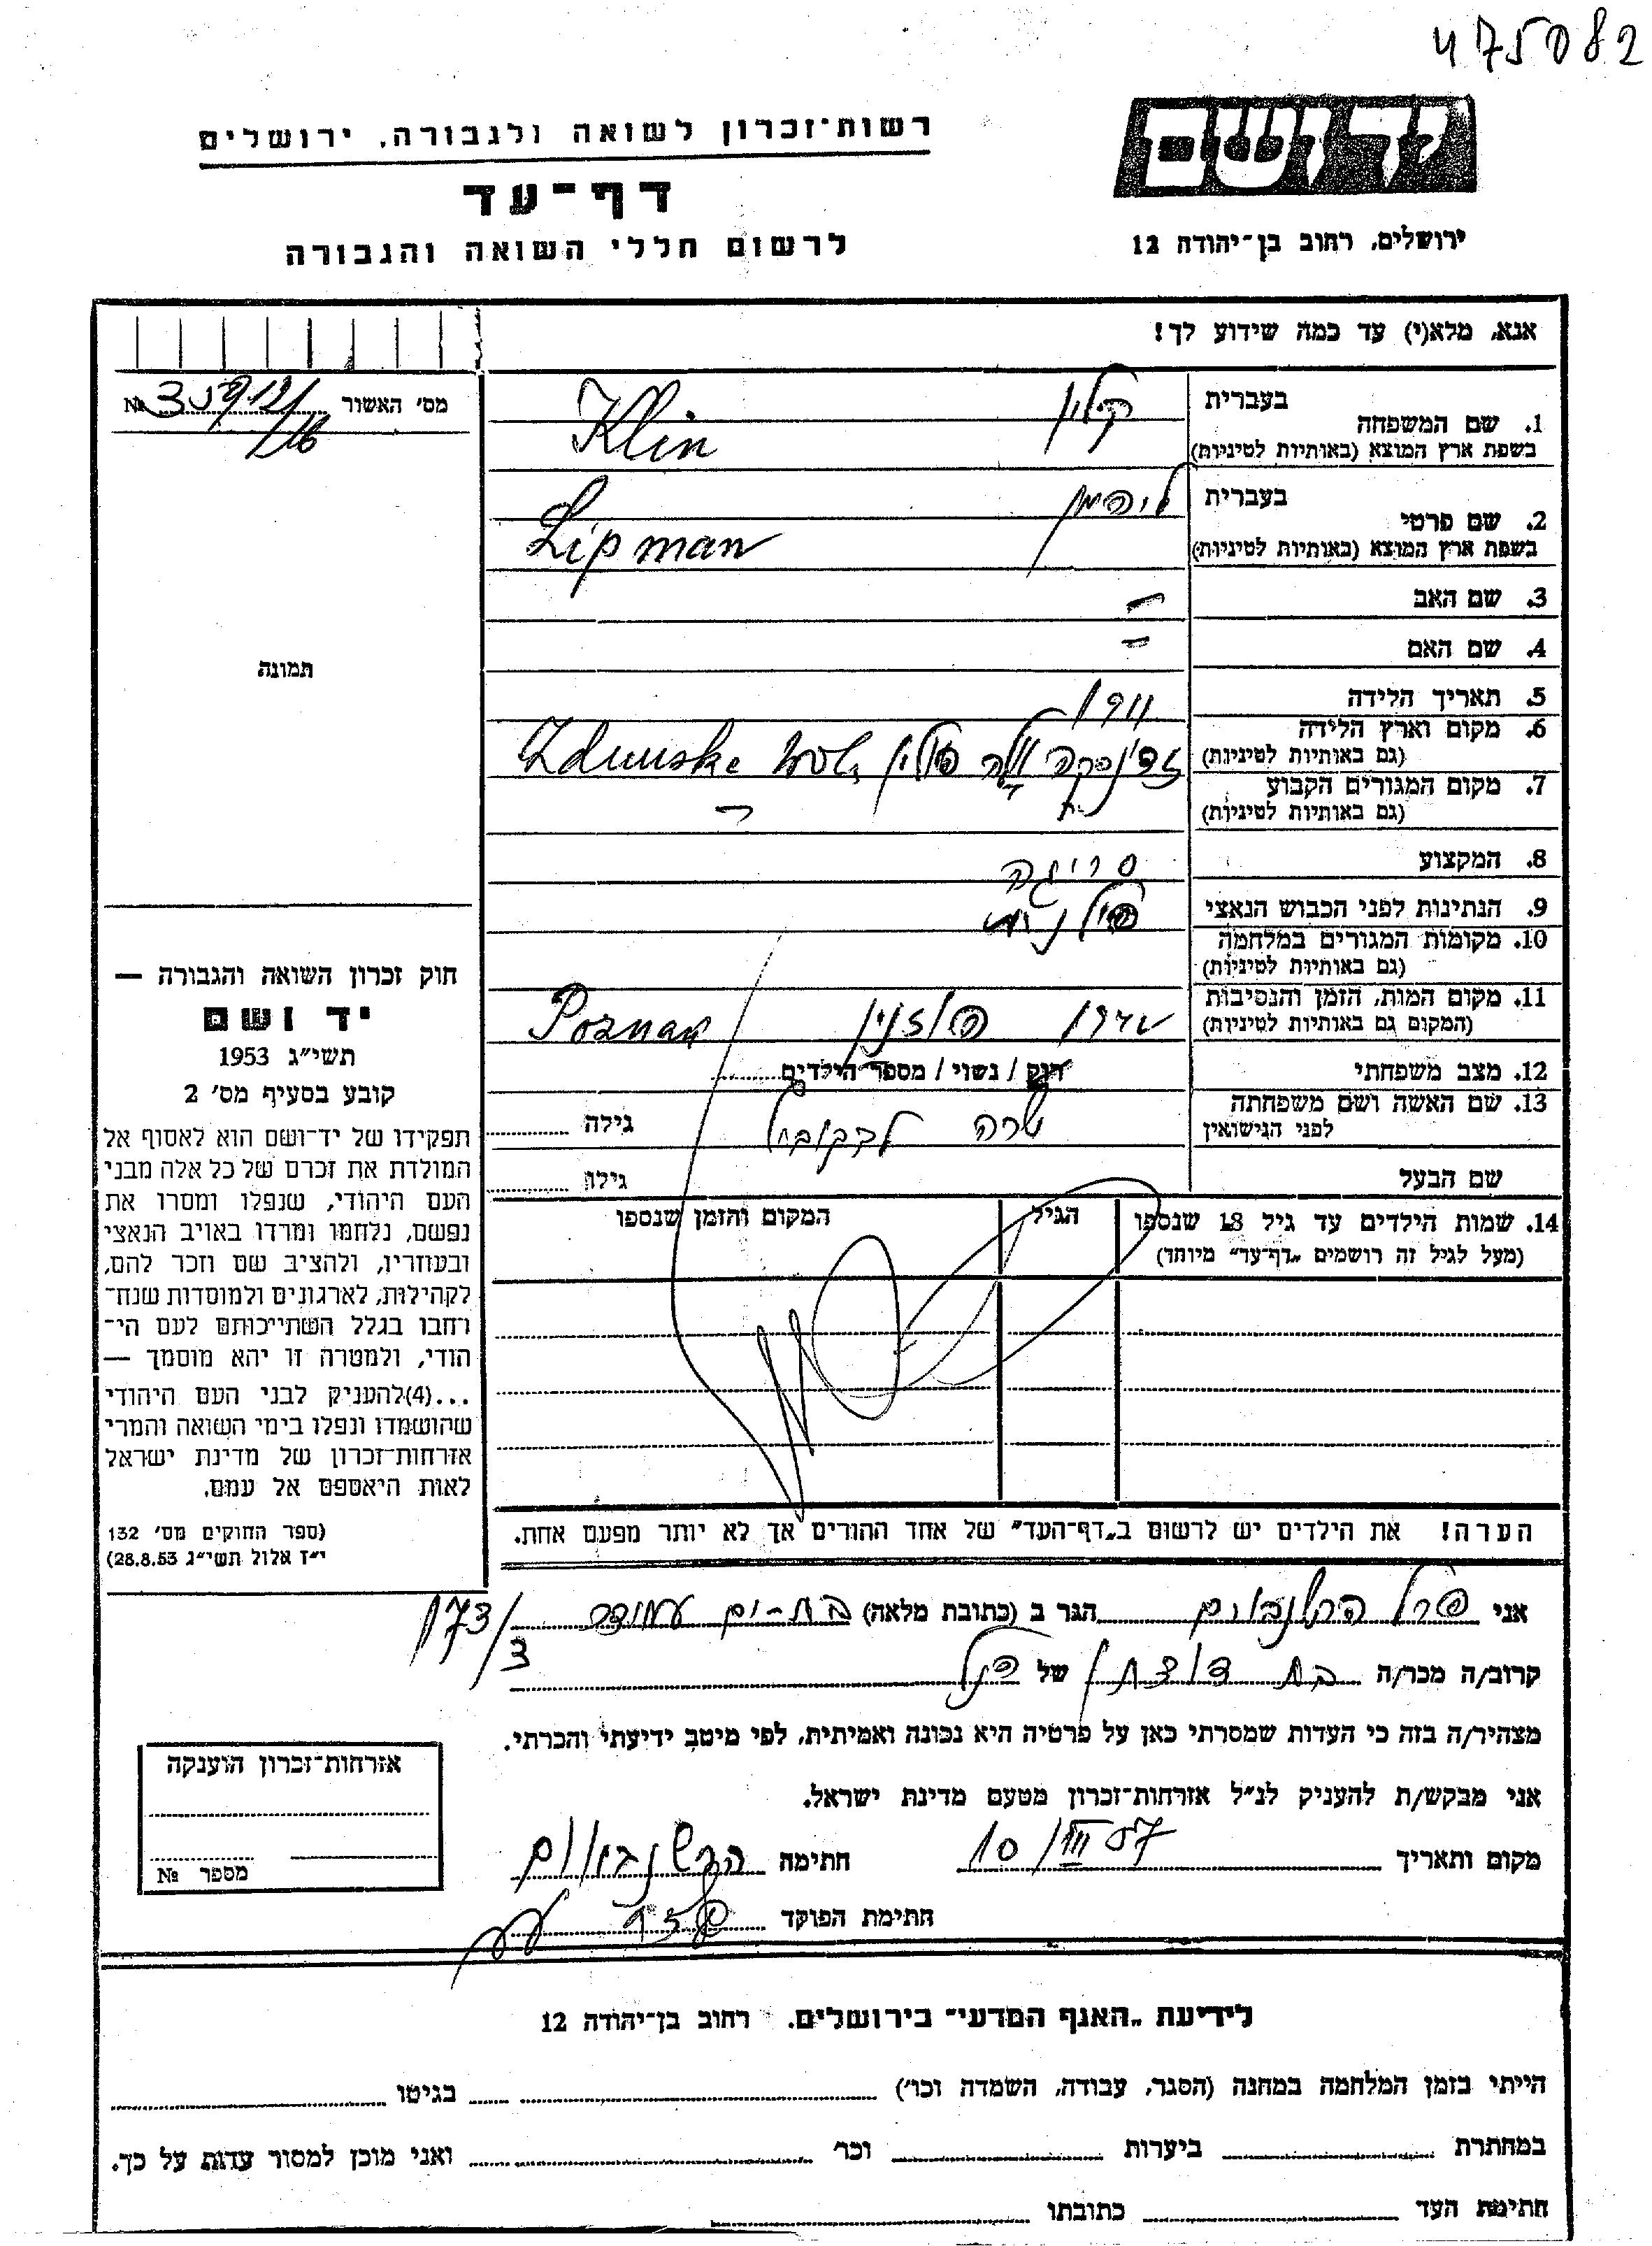 475082
יד ושם
רשות־זכרון לשואה ולגבורה, ירושלים
דף־עד
לרשום חללי השואה והגבורה
ירושלים, רחוב בן־יהודה 12
אנא, מלא(י) עד כמה שידוע לך!
מס' האשור №
1. שם המשפחה
בעברית קלין
בשפת ארץ המוצא (באותיות לטיניות) Klin
2. שם פרטי
בעברית ליפמן
בשפת ארץ המוצא (באותיות לטיניות) Lipman
3. שם האב –
4. שם האם –
5. תאריך הלידה 1911
6. מקום וארץ הלידה
(גם באותיות לטיניות) פולין Zdunska
7. מקום המגורים הקבוע
(גם באותיות לטיניות)
8. המקצוע
9. הנתינות לפני הכבוש הנאצי פולנית
10. מקומות המגורים במלחמה
(גם באותיות לטיניות)
11. מקום המות, הזמן והנסיבות
(המקום גם באותיות לטיניות) פוזנן Poznan
12. מצב משפחתי רוק / נשוי / מספר הילדים
13. שם האשה ושם משפחתה
לפני הנישואין שרה גילה
שם הבעל גילו
14. שמות הילדים עד גיל 18 שנספו
(מעל לגיל זה רושמים „דף־עד” מיוחד)
הגיל
המקום והזמן שנספו
הערה! את הילדים יש לרשום ב„דף־העד” של אחד ההורים אך לא יותר מפעם אחת.
תמונה
חוק זכרון השואה והגבורה —
יד ושם
תשי"ג 1953
קובע בסעיף מס' 2
תפקידו של יד־ושם הוא לאסוף אל
המולדת את זכרם של כל אלה מבני
העם היהודי, שנפלו ומסרו את
נפשם, נלחמו ומרדו באויב הנאצי
ובעוזריו, ולהציב שם וזכר להם,
לקהילות, לארגונים ולמוסדות שנח־
רחבו בגלל השתייכותם לעם הי־
הודי, ולמטרה זו יהא מוסמך —
...(4) להעניק לבני העם היהודי
שהושמדו ונפלו בימי השואה והמרי
אזרחות־זכרון של מדינת ישראל
לאות היאספם אל עמם.
(ספר החוקים מס' 132
י"ז אלול תשי"ג 28.8.53)
אני הגר ב (כתובת מלאה) בת-ים 173/3
קרוב/ה מכר/ה בת דודתו של הנ"ל
מצהיר/ה בזה כי העדות שמסרתי כאן על פרטיה היא נכונה ואמיתית, לפי מיטב ידיעתי והכרתי.
אני מבקש/ת להעניק לנ"ל אזרחות־זכרון מטעם מדינת ישראל.
מקום ותאריך 10/III 57 חתימה
חתימת הפוקד
אזרחות־זכרון הוענקה
מספר №
לידיעת „האגף המדעי” בירושלים, רחוב בן־יהודה 12
הייתי בזמן המלחמה במחנה (הסגר, עבודה, השמדה וכו') בגיטו
במחתרת ביערות וכו' ואני מוכן למסור עדות על כך.
חתימת העד כתובתו